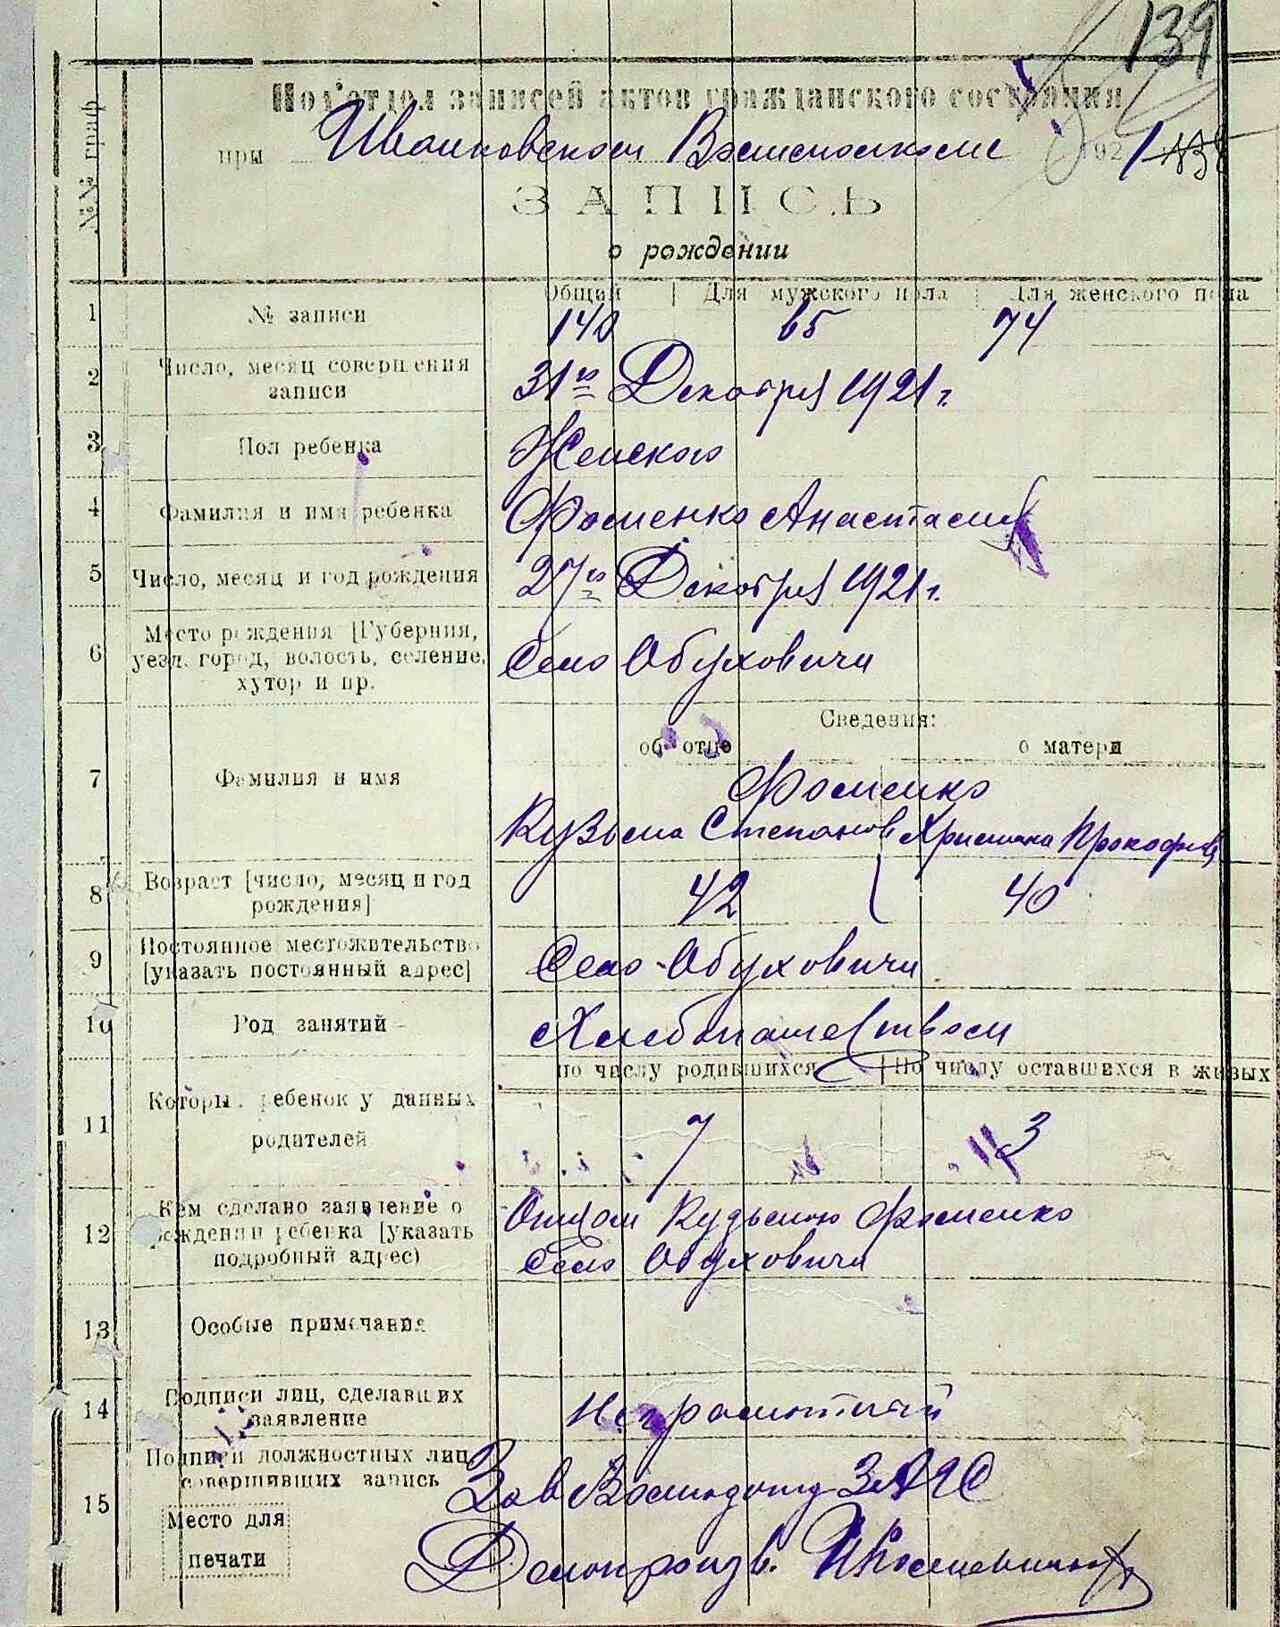 139
Под'отдел записей актов гражданского состояния
при Иванковском Волисполкоме 1921
№№ граф
ЗАПИСЬ
о рождении
Общий | Для мужского пола | Для женского пола
1 № записи 140 65 74
2 Число, месяц совершения
записи 31го Декабря 1921 г.
3 Пол ребенка Женского
4 Фамилия и имя ребенка Фоменко Анастасия
5 Число, месяц и год рождения 27го Декабря 1921 г.
6 Место рождения [Губерния,
уезд, город, волость, селение, Село Обуховичи
хутор и пр.
Сведения:
об отце о матери
7 Фамилия и имя Фоменко
Кузьма Степанов Христина Прокофиев
8 Возраст [число, месяц и год
рождения] 42 40
9 Постоянное местожительство
[указать постоянный адрес] Село Обуховичи
10 Род занятий Хлебопашеством
по числу родившихся | По числу оставшихся в живых
11 Который ребенок у данных
родителей 7 3
12 Кем сделано заявление о
рождении ребенка [указать
подробный адрес) Отцом Кузьмою Фоменко
Село Обуховичи
13 Особые примечания
14 Подписи лиц, сделавших
заявление Неграмотный
15 Подписи должностных лиц
совершивших запись Зав ЗАГС
Место для
печати Делопроизв.